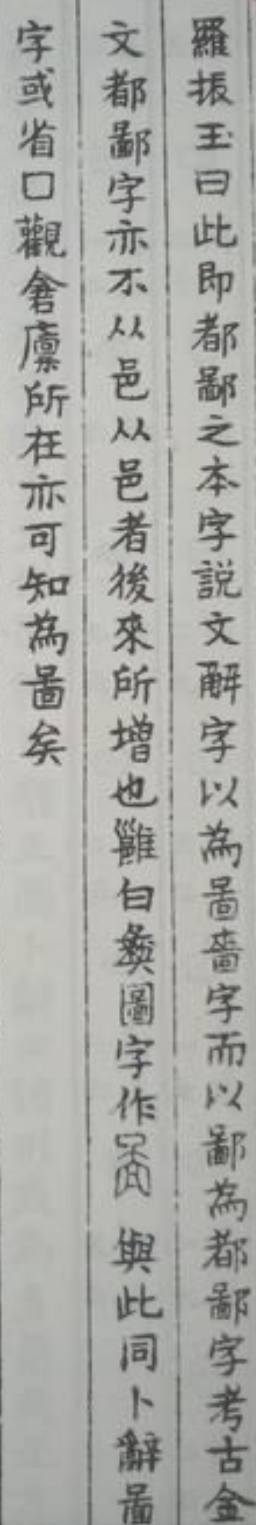 羅振玉曰此即都鄙之本字說文解字以為啚嗇字而以鄙為都鄙字考古金
文都鄙字亦不从邑从邑者後來所增也雝白彝圖字作 與此同卜辭啚
字或省囗觀倉廩所在亦可知為啚矣